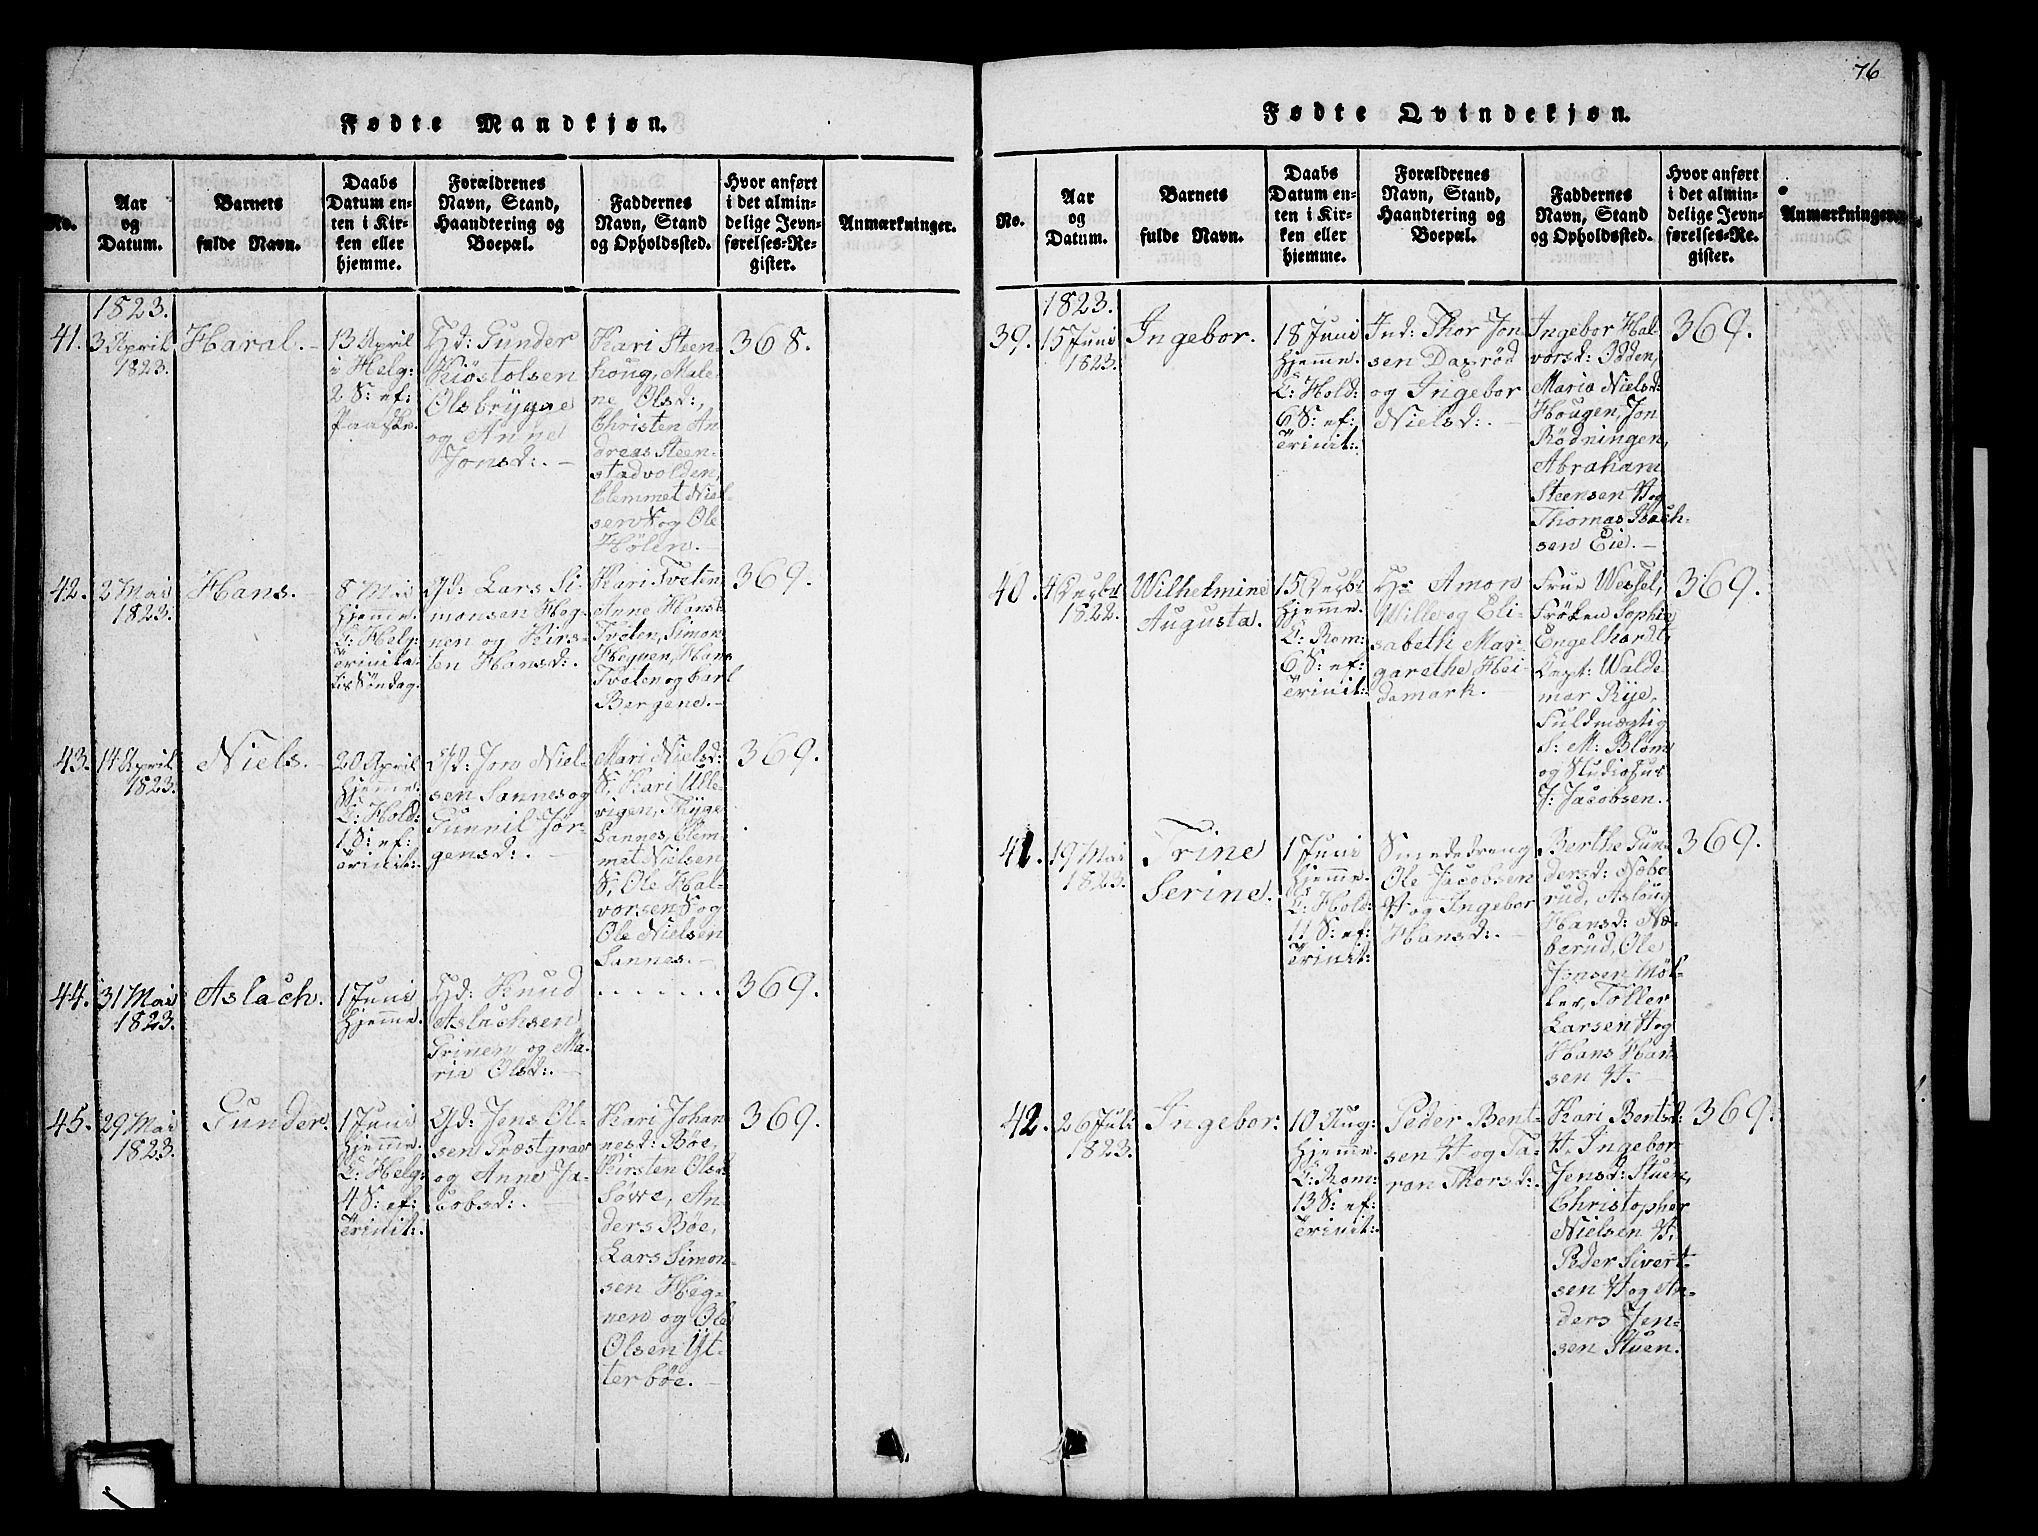 76
Fødte Mandkjøn.
No.
Aar
og
Datum.
Barnets
fulde Navn.
Daabs
Datum en-
ten i Kir-
ken eller
hjemme.
Forældrenes
Navn, Stand,
Haandtering og
Boepæl.
Faddernes
Navn, Stand
og Opholdssted.
Hvor anført
i det almin-
delige Jevn-
førelses-Re-
gister.
Anmærkninger.
1823.
41.
3 April
1823.
Haral.
13 April
i Helg:
2 S: ef:
Paaske.
Gunder
Kiøstolsen
Olsbrygge
og Anne
Jonsd:.
Kari Steen-
houg, Male-
ne Olsd:,
Christen An-
dreas Steen-
stadvolden,
Clemmet Niel-
sen og Ole
Hølen.
368.
42.
2 Mai
1823.
Hans.
8 Mai
hjemme.
C: Helg:
Trinita-
tis Søndag.
Gd: Lars Si-
monsen Heg-
nen og Kirs-
ten Hansd:.
Kari Tveten,
Anne Hansd:
Tveten, Simon
Hegnen, Hans
Tveten og Carl
Bergene.
369.
43.
14 April
1823.
Niels.
20 April
hjemme.
C: Hold:
1 S: ef:
Trinit:.
Gd: Jon Niel-
sen Sannes og
Gunnil Jør-
gensd:.
Mari Nielsd:
S, Kari Ulle-
vigen, Thyge
Sannes, Clem-
met Nielsen
S, Ole Hal-
vorsen S og
Ole Nielsen
Sannes.
369.
44.
31 Mai
1823.
Aslach.
1 Juni
hjemme.
Knud
Aslachsen
Grinen og Ma-
ria Olsd:.
. . . . . .
369.
45.
29 Mai
1823.
Gunder.
1 Juni
hjemme.
C: Helg:
4 S: ef:
Trinit:.
Gd: Jens Ol-
sen Præstgrav
og Anne Ja-
cobsd:.
Kari Johan-
nesd: Bøe,
Kirsten Olsd:
Søvve, An-
ders Bøe,
Lars Simon-
sen Heg-
nen og Ole
Olsen Yt-
terbøe.
369.
Fødte Qvindekjøn.
No.
Aar
og
Datum.
Barnets
fulde Navn.
Daabs
Datum en-
ten i Kir-
ken eller
hjemme.
Forældrenes
Navn, Stand,
Haandtering og
Boepæl.
Faddernes
Navn, Stand
og Opholdssted.
Hvor anført
i det almin-
delige Jevn-
førelses-Re-
gister.
Anmærkninger.
1823.
39.
15 Juni
1823.
Ingebor.
18 Juni
hjemme.
C: Hold:
6 S: ef:
Trinit:.
Ind: Thor Jon-
sen Daxrød
og Ingebor
Nielsd:.
Ingebor Hal-
vorsd: Odden,
Maria Nielsd:
Hougen, Jon
Rødningen,
Abraham
Steensen H og
Thomas Isach-
sen Eie.
369.
40.
4 Decbr
1822.
Wilhelmine
Augusta.
15 Decbr
hjemme.
C: Rom:
6 S: ef:
Trinit:.
Hr Amon
Wille og Eli-
sabeth Mar-
garethe Hei-
demark.
Frue Wessel,
Frøken Sophie
Engelhardt,
Capt: Walde-
mar Rye,
Fuldmægtig
S: M: Blom
og Studiosus
J: Jacobsen.
369.
41.
19 Mai
1823.
Trine
Serine.
1 Juni
hjemme.
C: Hold:
11 S: ef:
Trinit:
Smededreng
Ole Jacobsen
H og Ingebor
Hansd:.
Berthe Gun-
dersd: Nøbe-
rud, Aslaug
Hansd: Nø-
berud, Ole
Jensen Møl-
ler, Toller
Larsen H og
Hans Han-
sen H.
369.
42.
26 Juli
1823.
Ingebor.
10 Aug:
hjemme.
C: Rom:
13 S: ef:
Trinit:.
Peder Bent-
sen H og Ta-
ran Thorsd:.
Kari Bentsd:
H, Ingebor
Jensd: Stuen,
Christopher
Nielsen H,
Peder Sivert-
sen H og An-
ders Jen-
sen Stuen.
369.